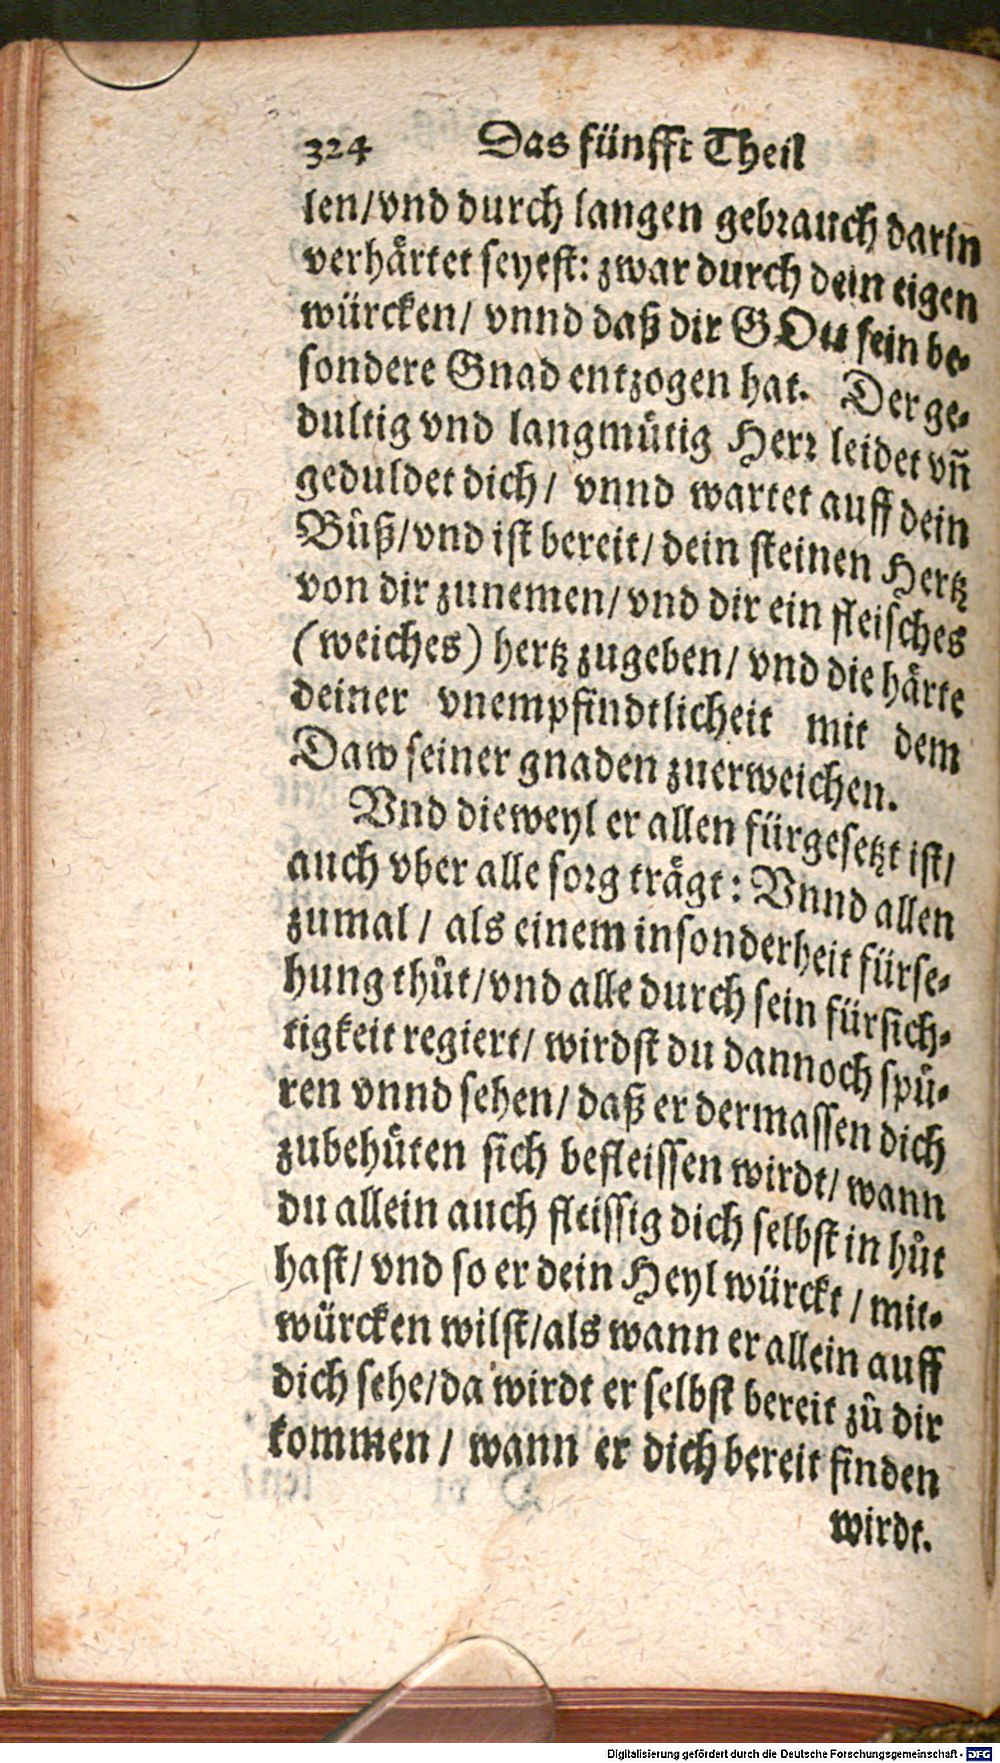 324 Das fünfft Theil
len/vnd durch langen gebrauch darin
verhaͤrtet seyest: zwar durch dein eigen
würcken/ vnnd daß dir GOtt sein be-
sondere Gnad entzogen hat. Der ge-
dultig vnd langmuͤtig Herr leidet vñ
geduldet dich/ vnnd wartet auff dein
Buͤß/vnd ist bereit/ dein steinen Hertz
von dir zunemen/ vnd dir ein fleisches
(weiches) hertz zugeben/ vnd die haͤrte
deiner vnempfindtlicheit mit dem
Daw seiner gnaden zuerweichen.
Vnd dieweyl er allen fürgesetzt ist/
auch vber alle sorg traͤgt: Vnnd allen
zumal/ als einem insonderheit fürse-
hung thuͦt/vnd alle durch sein fürsich-
tigkeit regiert/ wirdst du dannoch spuͤ-
ren vnnd sehen/ daß er dermassen dich
zubehuͤten sich befleissen wirdt/ wann
du allein auch fleissig dich selbst in huͦt
hast/ vnd so er dein Heyl würckt/ mit-
würcken wilst/als wann er allein auff
dich sehe/da wirdt er selbst bereit zuͦ dir
kommen/ wann er dich bereit finden
wirdt.
Digitalisierung gefördert durch die Deutsche Forschungsgemeinschaft - DFG